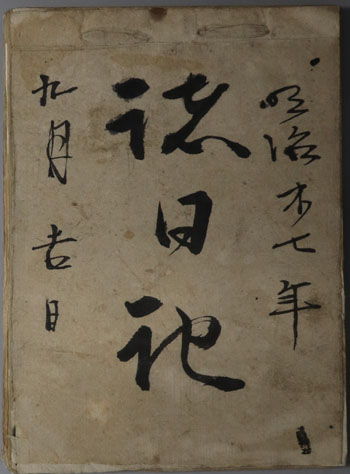 明治廿七年
諸日記
九月吉日